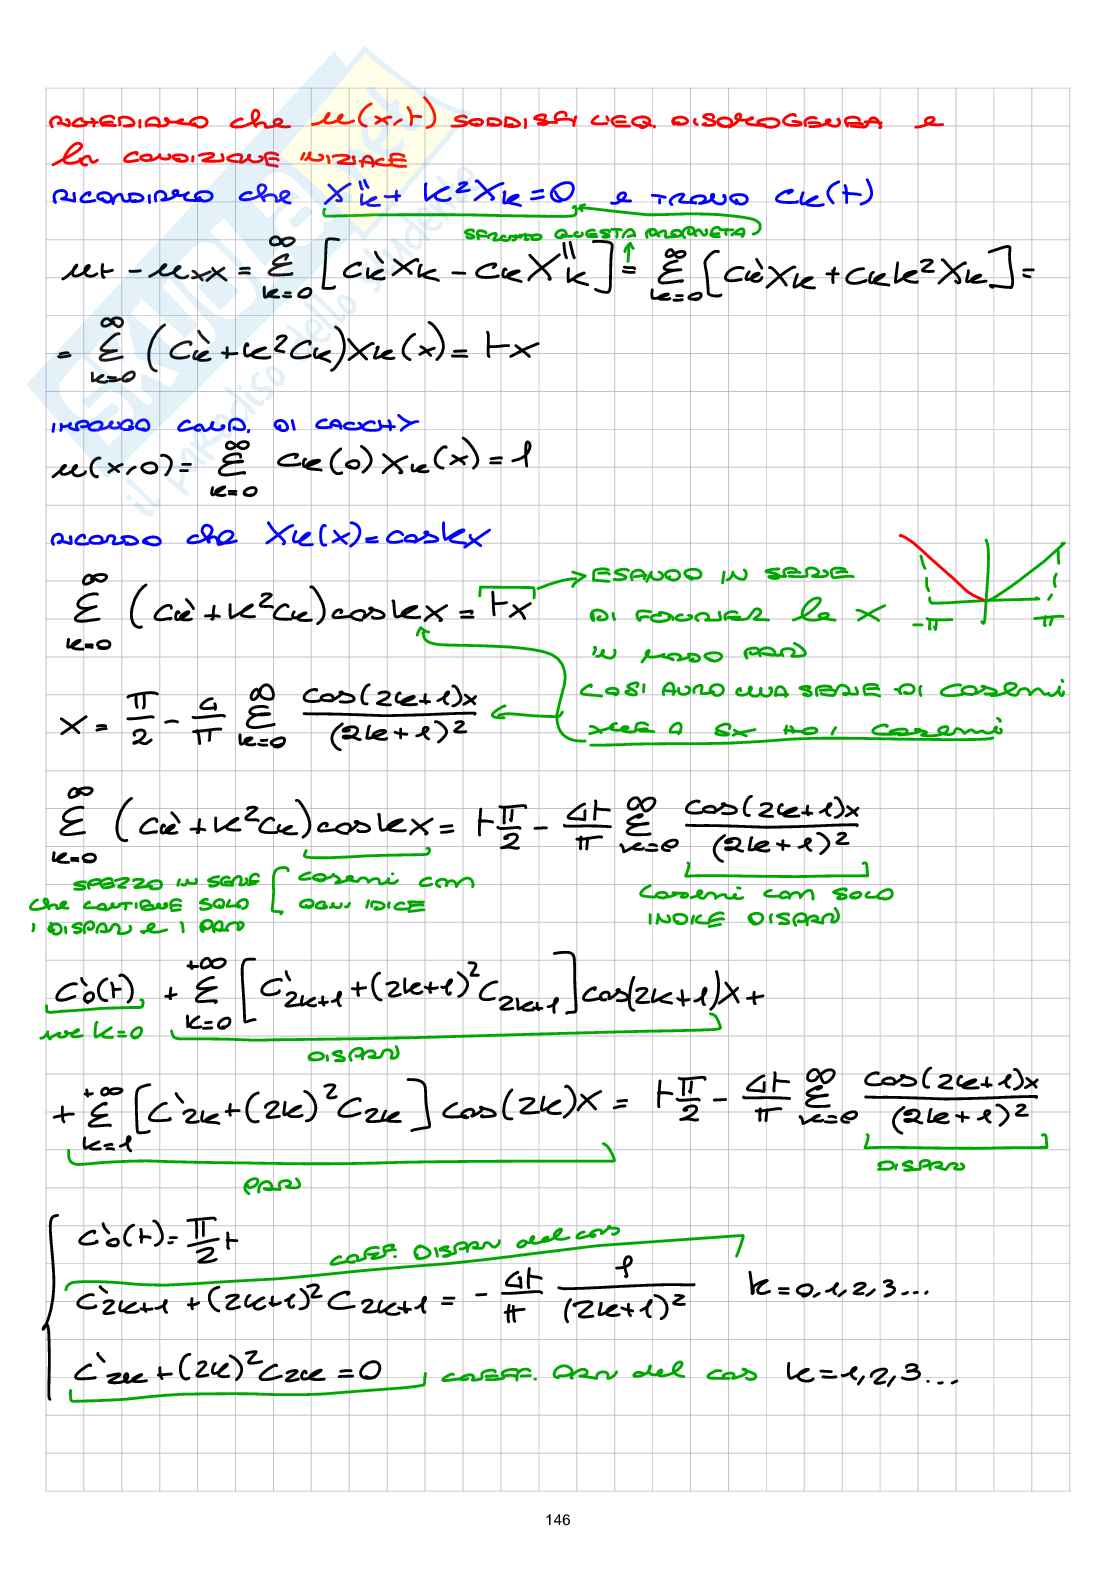 RICHIEDIAMO che u(x,t) SODDISFI L'EQ. DISOMOGENEA e
la CONDIZIONE INIZIALE
RICORDIAMO che X''k + k²Xk = 0 e TROVO Ck(t)
SFRUTTO QUESTA PROPRIETÀ
ut - uxx = Σ k=0 ∞ [C'k Xk - Ck X''k] = Σ k=0 ∞ [C'k Xk + Ck k² Xk] =
= Σ k=0 ∞ (C'k + k²Ck) Xk(x) = tx
IMPONGO COND. DI CAUCHY
u(x,0) = Σ k=0 ∞ Ck(0) Xk(x) = 1
RICORDO che Xk(x) = cos kx
Σ k=0 ∞ (C'k + k²Ck) cos kx = tx
ESPANDO IN SERIE
DI FOURIER la x
IN MODO PARI
COSÌ AVRÒ UNA SERIE DI coseni
XKE A SX HO I coseni
-π π
x = π/2 - 4/π Σ k=0 ∞ cos(2k+1)x / (2k+1)²
Σ k=0 ∞ (C'k + k²Ck) cos kx = t π/2 - 4t/π Σ k=0 ∞ cos(2k+1)x / (2k+1)²
SPEZZO IN SERIE
che CONTIENE SOLO
I DISPARI e I PARI
coseni con
OGNI IDICE
coseni con SOLO
INDICE DISPARI
C'0(t) + Σ k=0 +∞ [C'2k+1 + (2k+1)² C2k+1] cos(2k+1)x +
k=0
DISPARI
+ Σ k=1 +∞ [C'2k + (2k)² C2k] cos(2k)x = t π/2 - 4t/π Σ k=0 ∞ cos(2k+1)x / (2k+1)²
PARI
DISPARI
C'0(t) = π/2 t
COEFF. DISPARI del cos
C'2k+1 + (2k+1)² C2k+1 = - 4t/π 1/(2k+1)² k=0,1,2,3...
C'2k + (2k)² C2k = 0 COEFF. PARI del cos k=1,2,3...
146